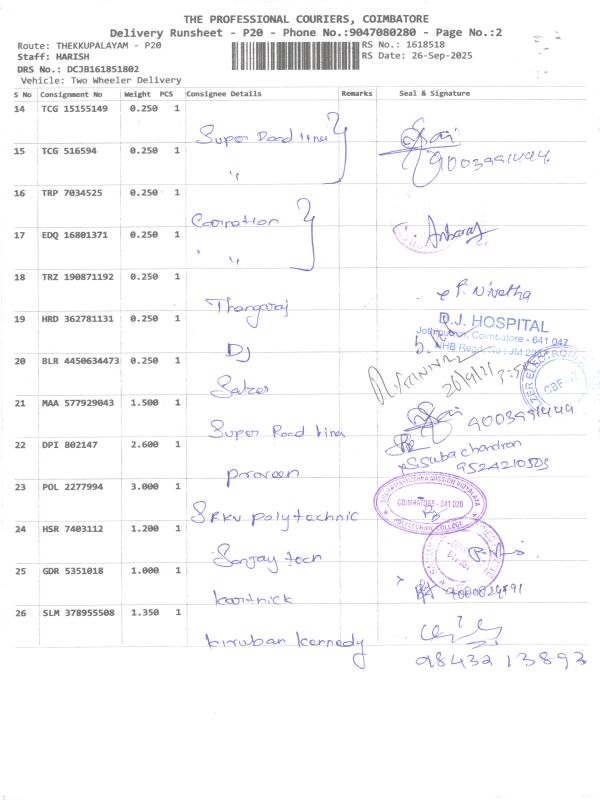 THE PROFESSIONAL COURIERS, COIMBATORE
Delivery Runsheet - P20 - Phone No.:9047080280 - Page No.:2
Route: THEKKUPALAYAM - P20
RS No.: 1618518
Staff: HARISH
RS Date: 26-Sep-2025
DRS No.: DCJB161851802
Vehicle: Two Wheeler Delivery
S No Consignment No Weight PCS Consignee Details Remarks Seal & Signature
14 TCG 15155149 0.250 1
Super Road lines
15 TCG 516594 0.250 1
9003991494
16 TRP 7034525 0.250 1
17 EDQ 16801371 0.250 1
18 TRZ 190871192 0.250 1
P. Nivetha
Thangaraj
19 HRD 362781131 0.250 1
D.J. HOSPITAL
Coimbatore - 641 047
DJ
20 BLR 4450634473 0.250 1
21 MAA 577929043 1.500 1
Super Road lines
22 DPI 802147 2.600 1
Praveen
9524210503
23 POL 2277994 3.000 1
SRI RAMAKRISHNA MISSION VIDYALAYA
COIMBATORE - 641 020
POLYTECHNIC COLLEGE
SRKV polytechnic
24 HSR 7403112 1.200 1
Sanjay tech
25 GDR 5351018 1.000 1
karthick
26 SLM 378955508 1.350 1
kiruban kennedy
98432 13893